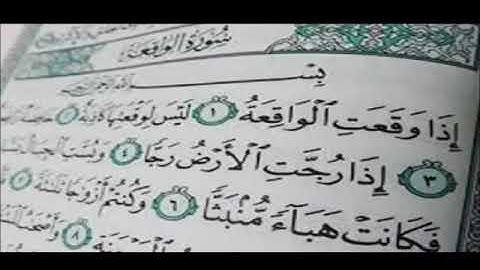 سُورَةُ الْوَاقِعَةِ
بِسْمِ اللَّهِ الرَّحْمَٰنِ الرَّحِيمِ
إِذَا وَقَعَتِ الْوَاقِعَةُ ١ لَيْسَ لِوَقْعَتِهَا كَاذِبَةٌ ٢
٣ إِذَا رُجَّتِ الْأَرْضُ رَجًّا ٤ وَبُسَّتِ الْجِبَالُ
فَكَانَتْ هَبَاءً مُّنۢبَثًّا ٦ وَكُنتُمْ أَزْوَاجًا ثَلَاثَةً ٧
٨